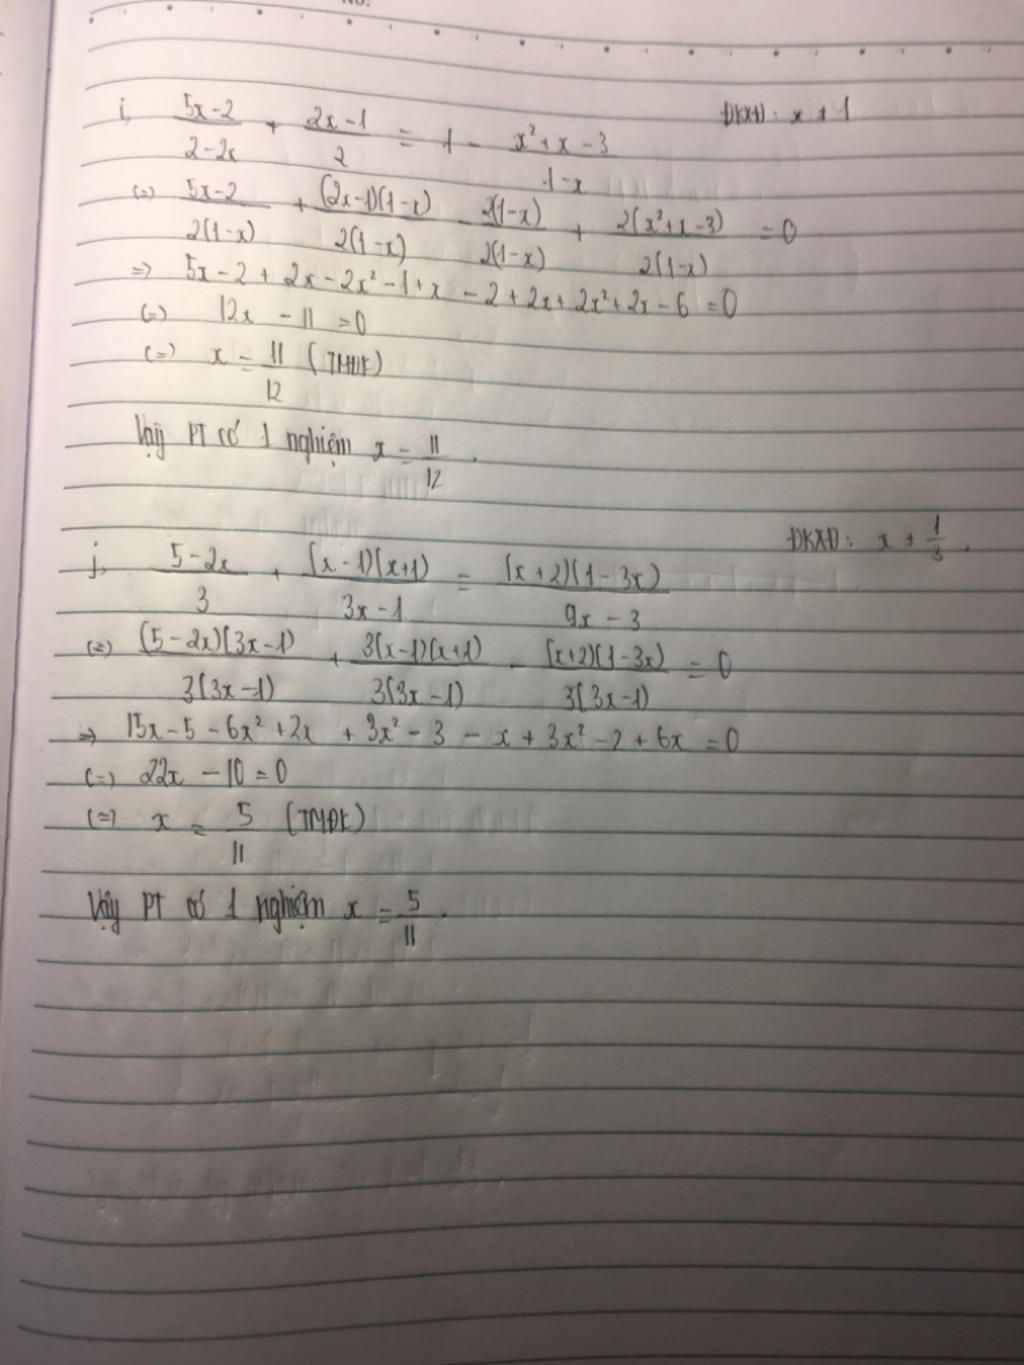 i, (5x-2)/(2-2x) + (2x-1)/2 = 1 - (x²+x-3)/(1-x) ĐKXĐ: x ≠ 1
(=) (5x-2)/(2(1-x)) + ((2x-1)(1-x))/(2(1-x)) - (2(1-x))/(2(1-x)) + (2(x²+x-3))/(2(1-x)) = 0
=> 5x-2 + 2x - 2x² - 1 + x - 2 + 2x + 2x² + 2x - 6 = 0
(=) 12x - 11 = 0
(=) x = 11/12 (TMĐK)
Vậy PT có 1 nghiệm x = 11/12.
j, (5-2x)/3 + ((x-1)(x+1))/(3x-1) = ((x+2)(1-3x))/(9x-3) ĐKXĐ: x ≠ 1/3.
(=) ((5-2x)(3x-1))/(3(3x-1)) + (3(x-1)(x+1))/(3(3x-1)) - ((x+2)(1-3x))/(3(3x-1)) = 0
=> 15x - 5 - 6x² + 2x + 3x² - 3 - x + 3x² - 2 + 6x = 0
(=) 22x - 10 = 0
(=) x = 5/11 (TMĐK)
Vậy PT có 1 nghiệm x = 5/11.